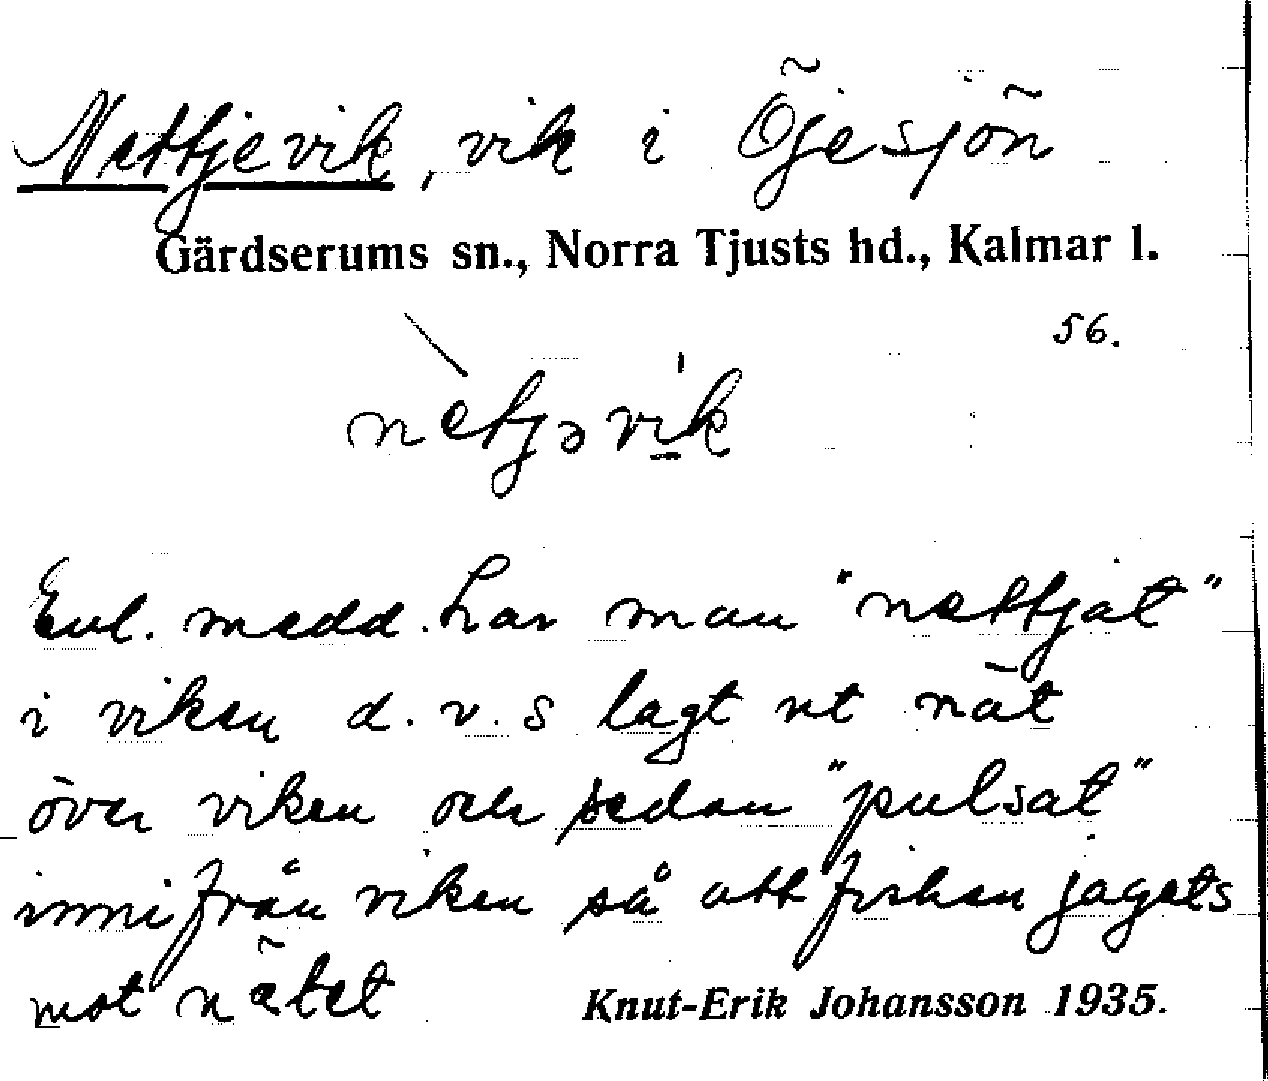 Nettjevik, vik i Öjesjön
Gärdserums sn., Norra Tjusts hd., Kalmar l.
56.
netjəvik
Enl. medd. har man "nettjat"
i viken d. v. s lagt ut nät
över viken och sedan "pulsat"
innifrån viken så att fisken jagats
mot nätet
Knut-Erik Johansson 1935.